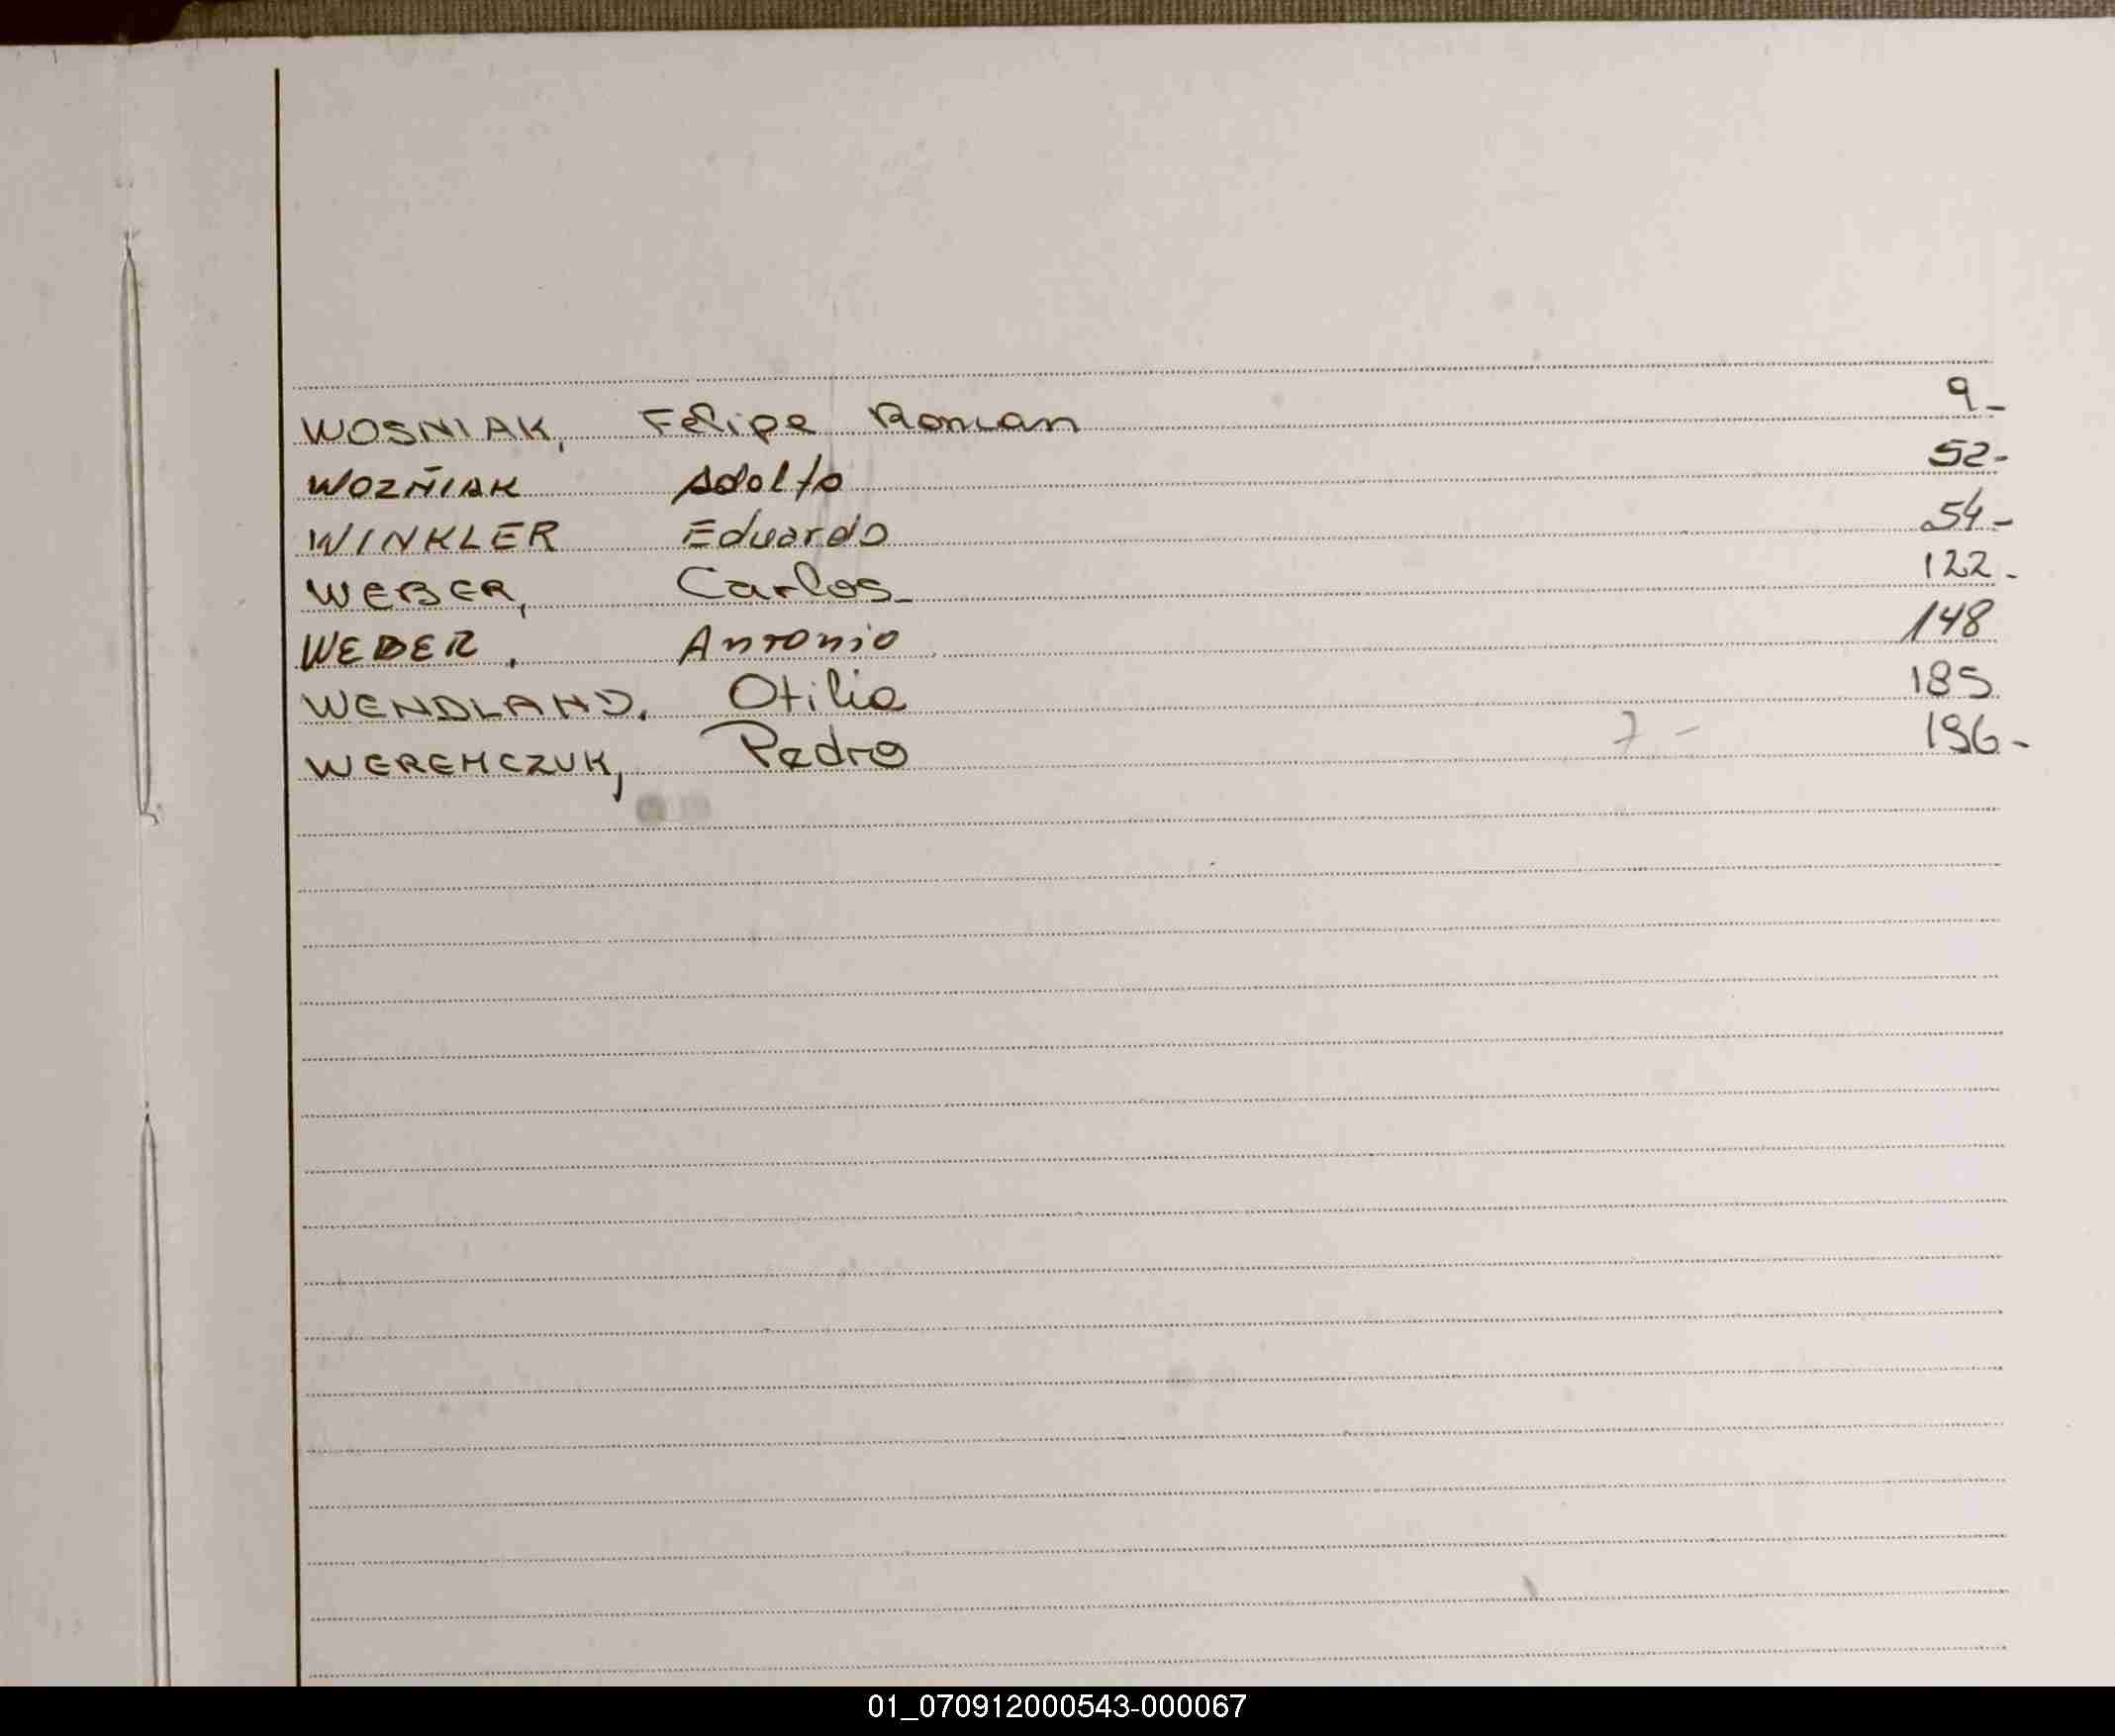 WOSNIAK, Felipe Roman 9-
WOZÑIAK Adolfo 52-
WINKLER Eduardo 54-
WEBER, Carlos- 122-
WEBER, Antonio 148
WENDLAND, Otilia 185
WEREMCZUK, Pedro 7 - 196-
01_070912000543-000067